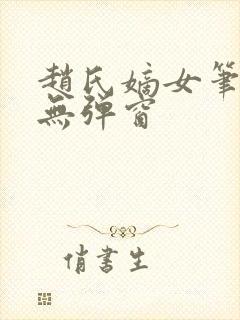 趙氏嫡女筆
無彈窗
俏書生